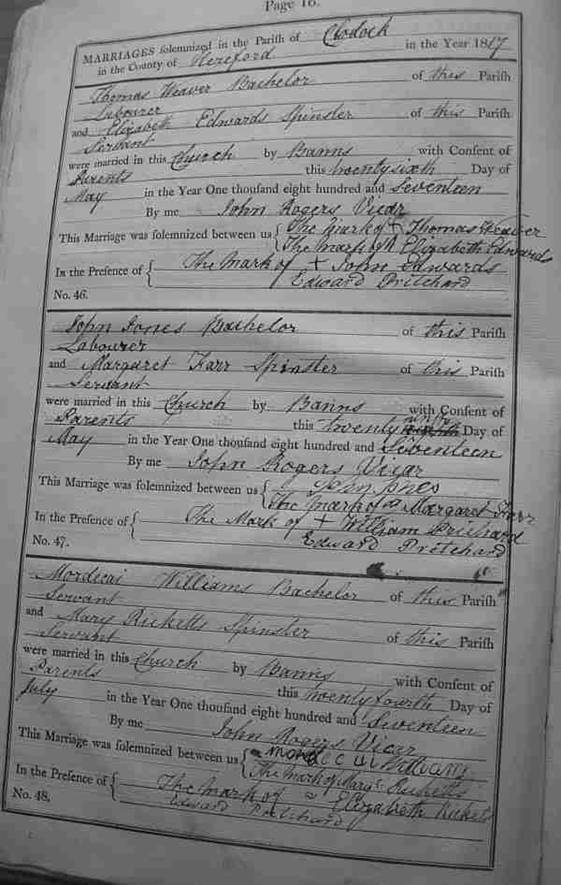 Page 16.
MARRIAGES solemnized in the Parish of Clodock
in the County of Hereford in the Year 1817
Thomas Weaver Bachelor of this Parish
Labourer
and Elizabeth Edwards Spinster of this Parish
Servant
were married in this Church by Banns with Consent of
Parents this twentysixth Day of
May in the Year One thousand eight hundred and Seventeen
By me John Rogers Vicar
This Marriage was solemnized between us { The Mark of + Thomas Weaver
The mark of Elizabeth Edwards
In the Presence of { The Mark of + John Edwards
Edward Pritchard
No. 46.
John Jones Bachelor of this Parish
Labourer
and Margaret Farr Spinster of this Parish
Servant
were married in this Church by Banns with Consent of
Parents this twenty ninth Day of
May in the Year One thousand eight hundred and Seventeen
By me John Rogers Vicar
This Marriage was solemnized between us { John Jones
The mark of Margaret Farr
In the Presence of { The Mark of + William Prichard
Edward Pritchard
No. 47.
Mordecai Williams Bachelor of this Parish
Servant
and Mary Ricketts Spinster of this Parish
Servant
were married in this Church by Banns with Consent of
Parents this twentyfourth Day of
July in the Year One thousand eight hundred and Seventeen
By me John Rogers Vicar
This Marriage was solemnized between us { mordecai Williams
The mark of Mary Ricketts
In the Presence of { The Mark of Elizabeth Rickets
Edward Pritchard
No. 48.